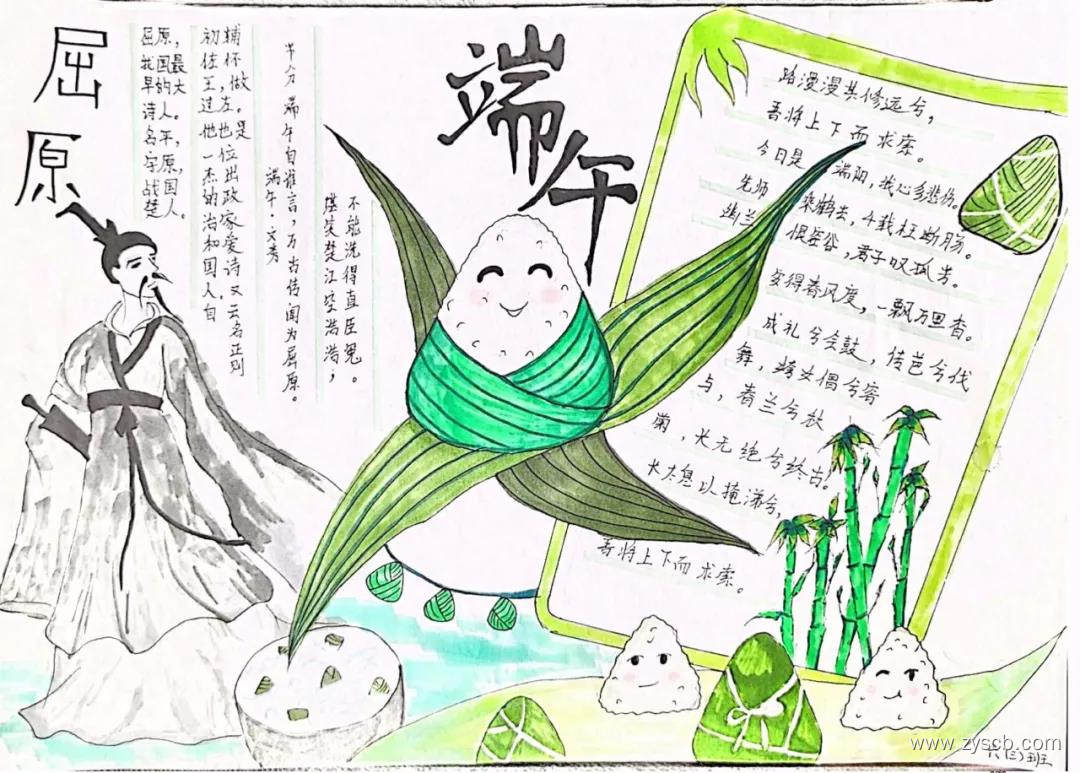 屈原
屈原，
我国最
早的大
诗人。
名平，
字原，
战国
楚人。
初辅
佐怀
王，做
过左。
他也是
一位
杰出
的政
治家
和爱
国诗
人，又
自云
名正
别
节分端午自谁言，万古传闻为屈原。
端午·文秀
堪笑楚江空渺渺，
不能洗得直臣冤。
端午
路漫漫其修远兮，
吾将上下而求索。
今日是端阳，我心多悲伤。
先师乘鹤去，千载枉断肠。
幽兰恨空谷，君子叹孤芳。
安得春风度，一飘万里香。
成礼兮会鼓，传芭兮代
舞，姱女倡兮容
与，春兰兮秋
菊，长无绝兮终古。
长太息以掩涕兮，
吾将上下而求索。
www.zyscb.com
六(三)班